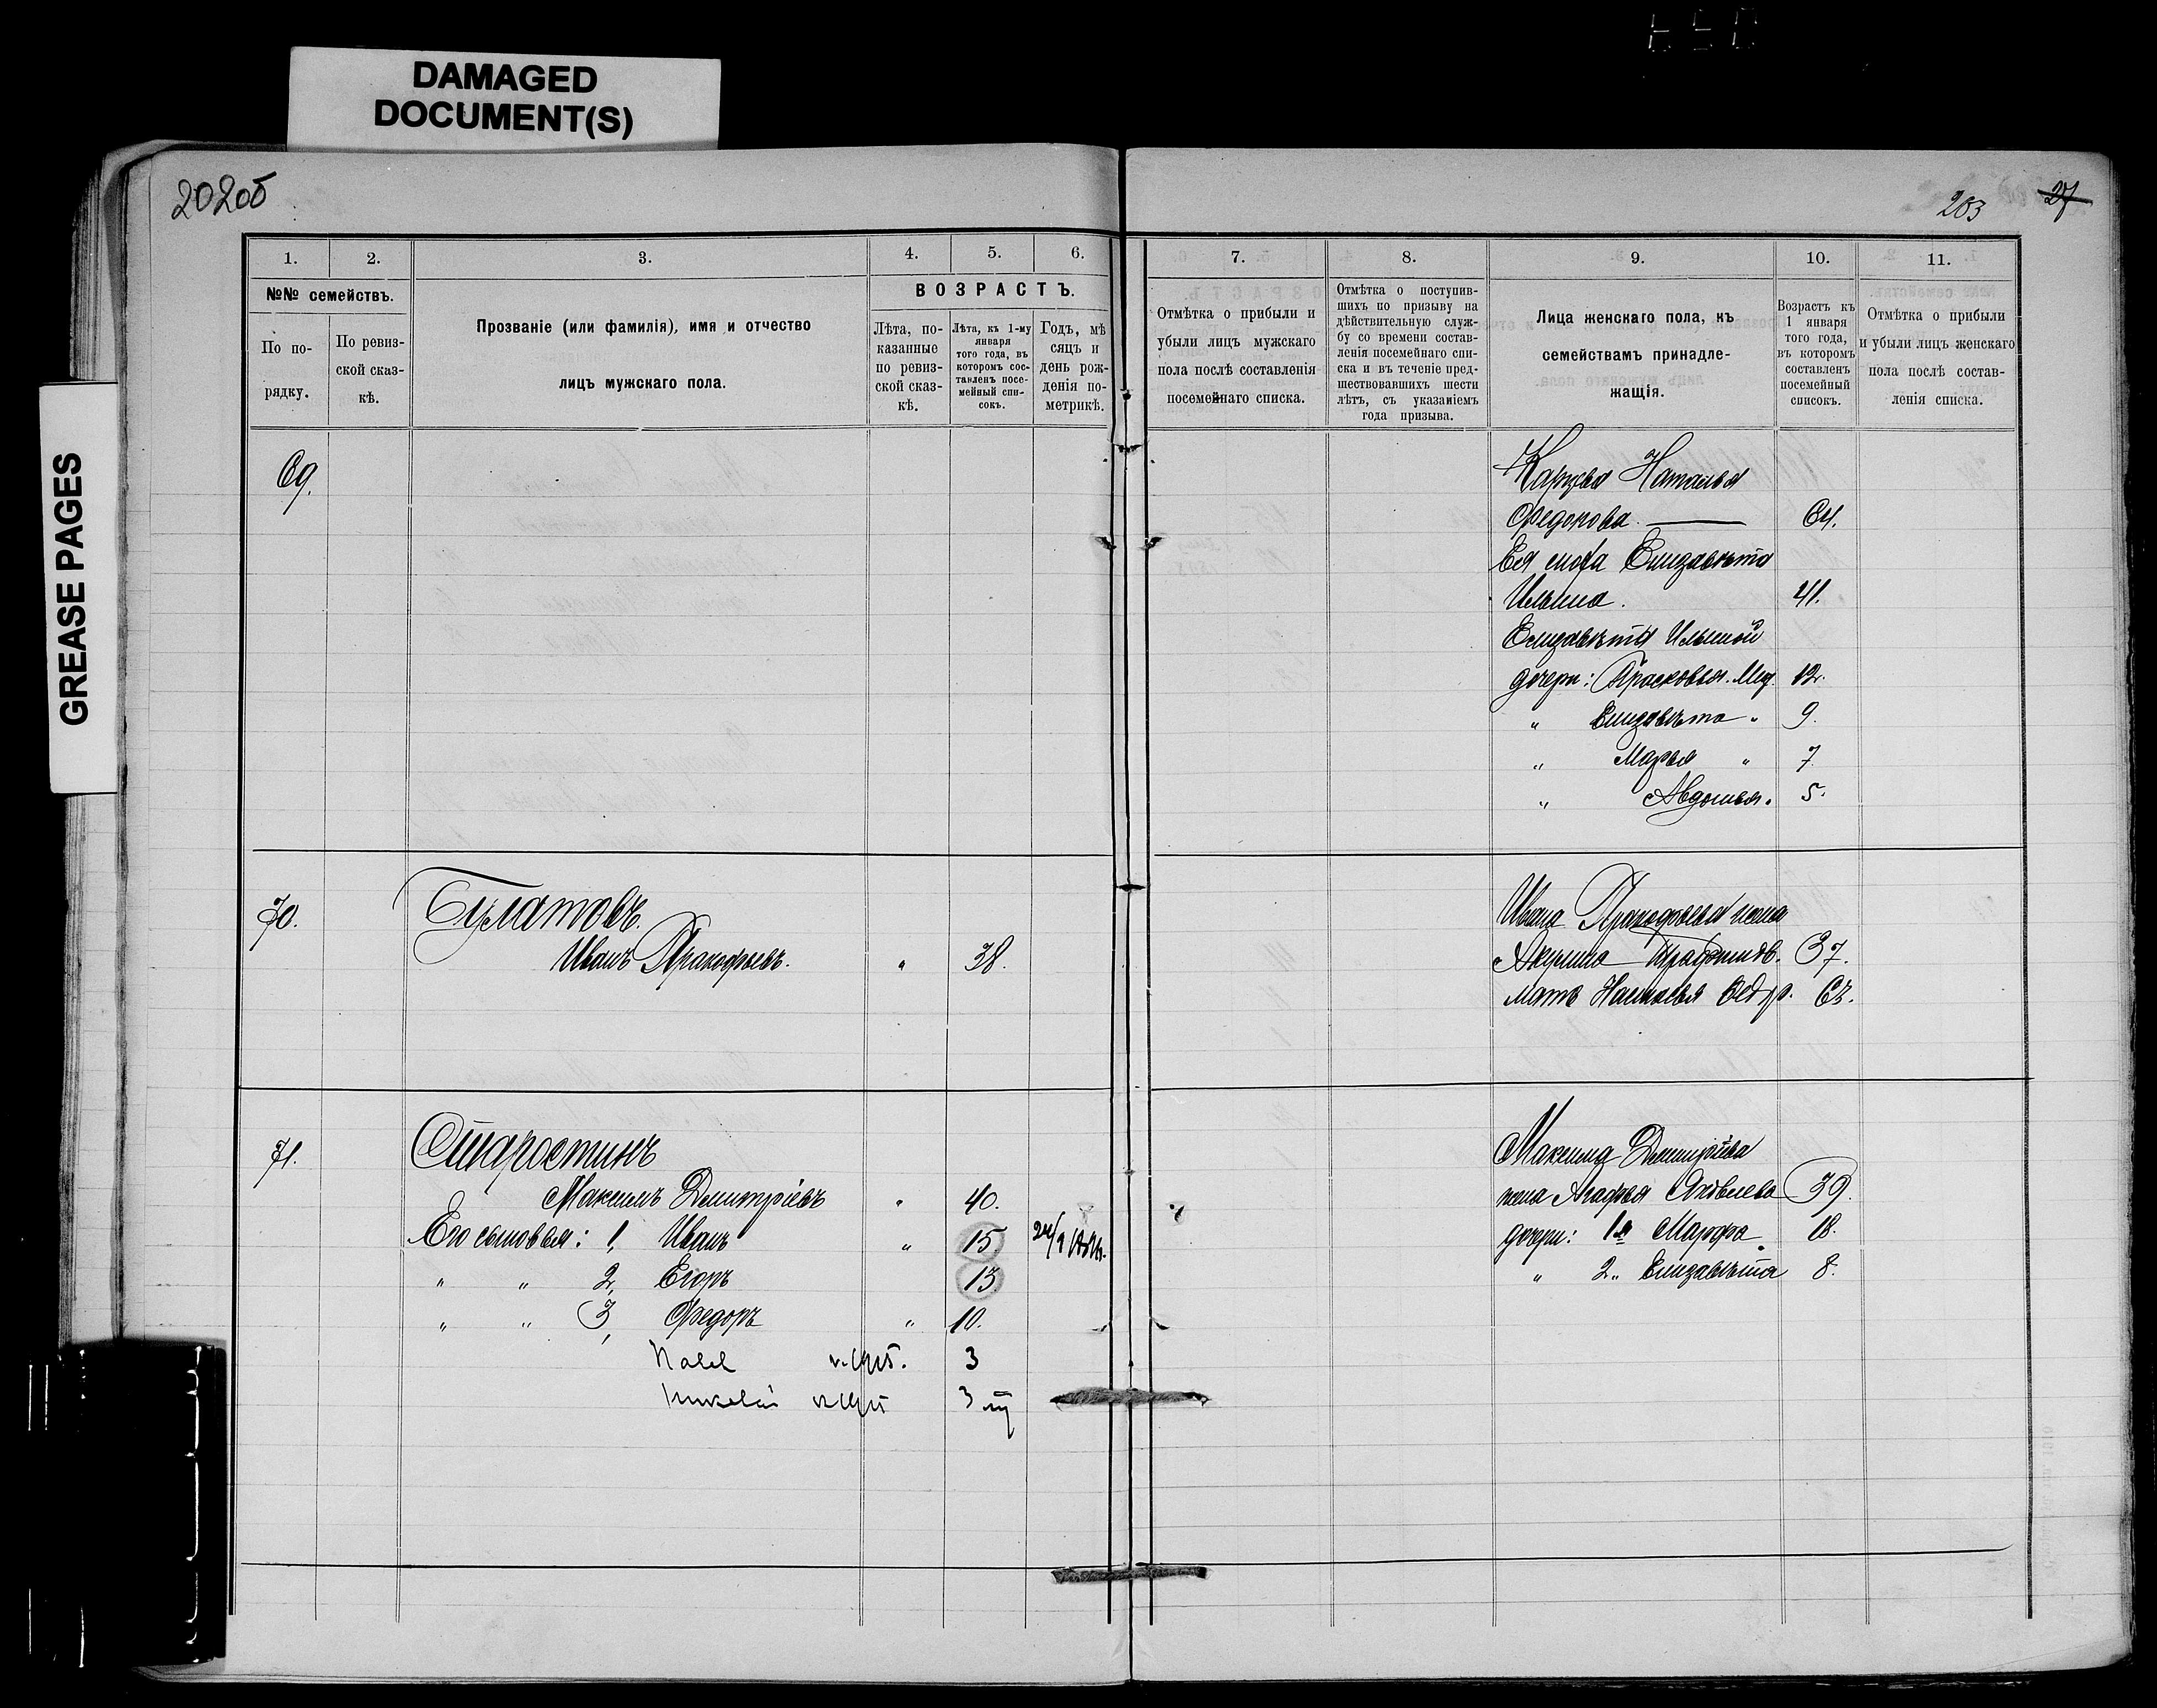 DAMAGED
DOCUMENT(S)
GREASE PAGES
202об
203 27
1.
2.
3.
4.
5.
6.
№№ семействъ.
По по-
рядку.
По ревиз-
ской сказ-
кѣ.
Прозваніе (или фамилія), имя и отчество
лицъ мужскаго пола.
ВОЗРАСТЪ.
Лѣта, по-
казанные
по ревиз-
ской сказ-
кѣ.
Лѣта, къ 1-му
января
того года, въ
которомъ сос-
тавленъ посе-
мейный спи-
сокъ.
Годъ, мѣ
сяцъ и
день рож-
денія по-
метрикѣ.
7.
8.
9.
10.
11.
Отмѣтка о прибыли и
убыли лицъ мужскаго
пола послѣ составленія
посемейнаго списка.
Отмѣтка о поступив-
шихъ по призыву на
дѣйствительную служ-
бу со времени состав-
ленія посемейнаго спи-
ска и въ теченіе пред-
шествовавшихъ шести
лѣтъ, съ указаніемъ
года призыва.
Лица женскаго пола, къ
семействамъ принадле-
жащія.
Возрастъ къ
1 января
того года,
въ которомъ
составленъ
посемейный
списокъ.
Отмѣтка о прибыли
и убыли лицъ женскаго
пола послѣ состав-
ленія списка.
69.
Карцева Наталья
Федорова. — 64.
Ея сноха Елизавѣта
Ильина. 41.
Елизавѣты Ильиной
дочери: Прасковья. 12.
„ Елизавѣта „ 9.
„ Марья „ 7
„ Авдотья „ 5.
70.
Булатовъ.
Иванъ Прокофьевъ. „ 38.
Ивана Прокофьева жена
Акулина 37.
мать Наталья Ѳедр. 63.
71.
Старостинъ
Максимъ Дмитріевъ „ 40.
Его сыновья: 1, Иванъ „ 15
„ „ 2, Егоръ 13
„ „ 3, Федоръ „ 10.
3
3
Максима Дмитріева
жена Агафья Яковлева 39.
дочери: 1я Марфа 18.
„ 2„ Елизавѣта 8.